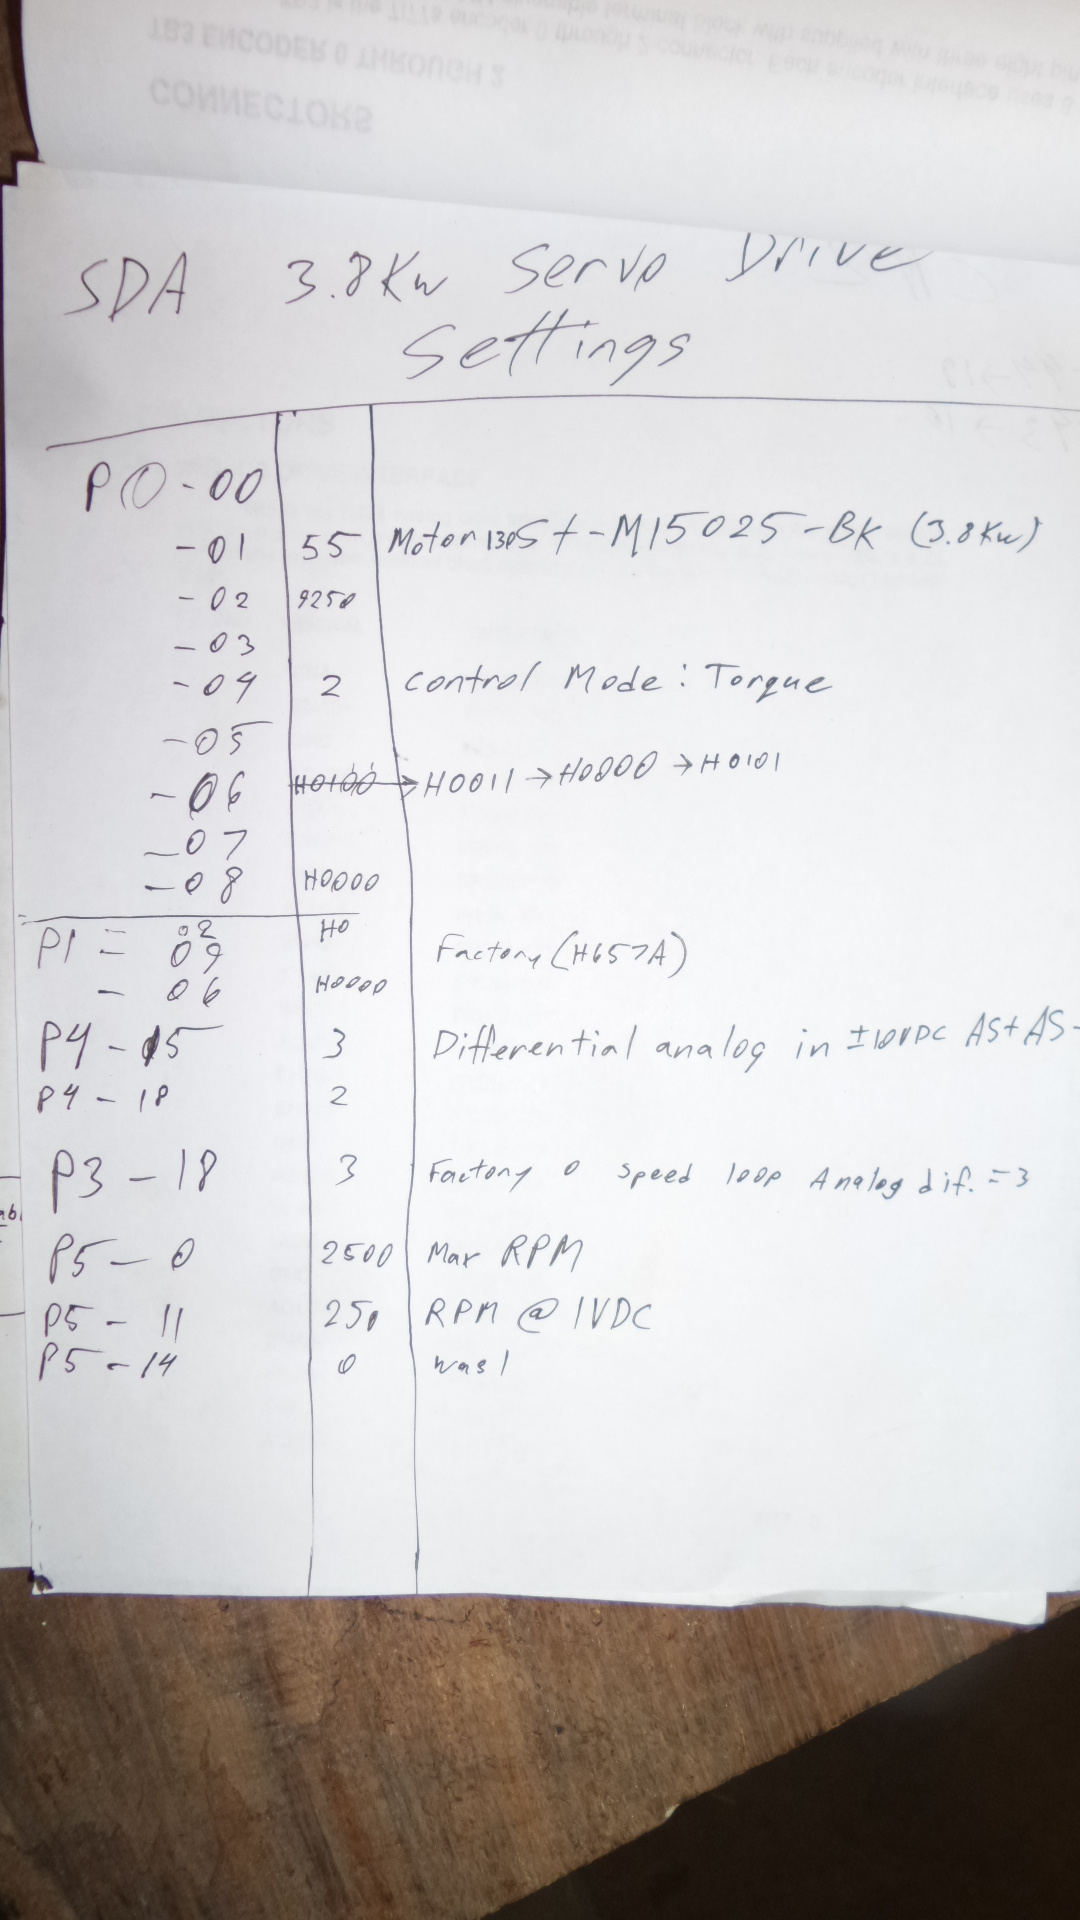 CONNECTORS
TB3 ENCODER 0 THROUGH 2
SDA 3.8Kw Servo Drive
Settings
P0-00
-01 55 Motor 130St-M15025-BK (3.8Kw)
-02 9250
-03
-04 2 Control Mode: Torque
-05
-06 H0100 → H0011 → H0000 → H0101
-07
-08 H0000
P1 - 02 H0
09 Factory (H657A)
- 06 H0000
P4 - 15 3 Differential analog in ±10VDC AS+ AS-
P4 - 18 2
P3 - 18 3 Factory 0 Speed loop Analog dif. = 3
P5 - 0 2500 Max RPM
P5 - 11 250 RPM @ 1VDC
P5 - 14 0 was 1